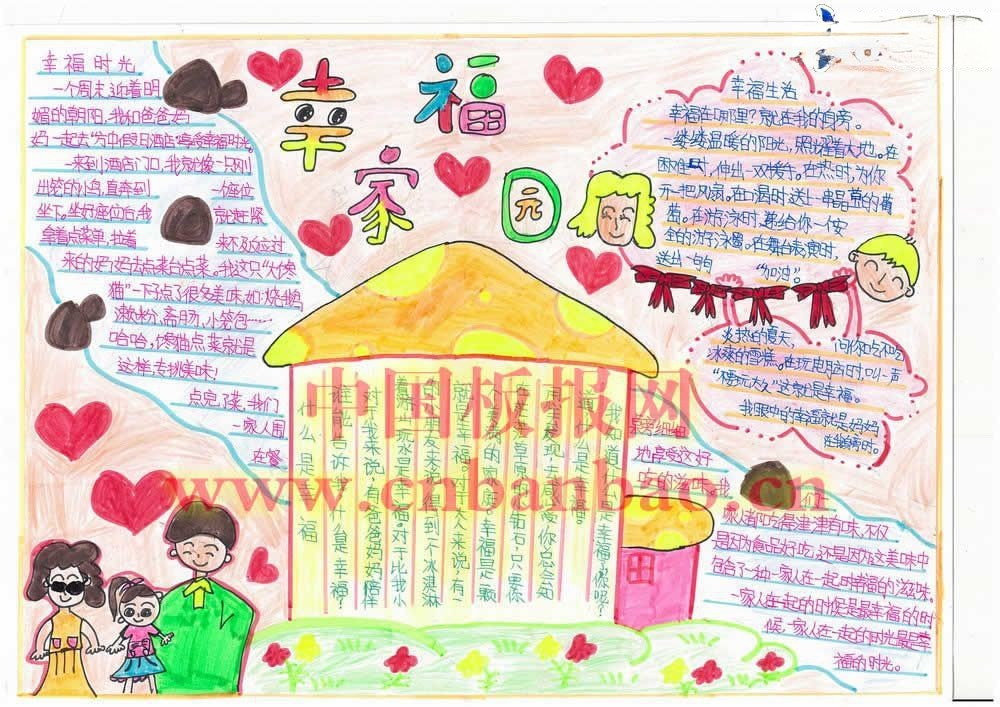 幸福家园
幸福时光
一个周末,迎着明
媚的朝阳,我和爸爸妈
妈一起去"方中假日酒店"享受幸福时光。
一来到酒店门口,我就像一只刚
出笼的小鸟,直奔到 一个座位
坐下。坐好座位后,我 就赶紧
拿着点菜单,拉着 来不及应过
来的妈妈去点菜台点菜。我这只"大馋
猫"一下子点了很多美味,如:烧鹅
濑粉、斋肠、小笼包……
哈哈,馋猫点菜就是
这样,专挑美味!
点完了菜,我们
一家人围
在餐
幸福生活
幸福在哪里?就在我的身旁。
一缕缕温暖的阳光,照耀着大地。在
困难时,伸出一双援手。在热时,为你
开一把风扇。在口渴时送上一串晶莹的葡
萄。在游泳时,递给你一个安
全的游泳圈。在舞台表演时,
送出一句 "加油"。
炎热的夏天, 问你吃不吃
冰爽的雪糕。在玩电脑时,叫一声
"不要玩太久"这就是幸福。
我眼中的幸福就是妈妈
在我身旁时。
什么是幸福
谁能告诉我什么是幸福?
对于我来说,有爸爸妈妈陪伴
着游山玩水是幸福。对于比我小
的朋友来说,得到一个冰淇淋
就是幸福。对于大人来说,有一
个美满的家庭
幸福是一颗
钻石,只要你
用心发现,去感受,你总会知
道,什么是幸福。
我知道什么是幸福了,你呢?
旁细细
地享受这好
吃的滋味。我
们一
家人都吃得津津有味,不仅
是因为食品好吃,还是因为这美味中
包含了一种一家人在一起时幸福的滋味。
一家人在一起的时候是最幸福的时
候,一家人在一起的时光最是幸
福的时光。
中国板报网
www.cnbanbao.cn